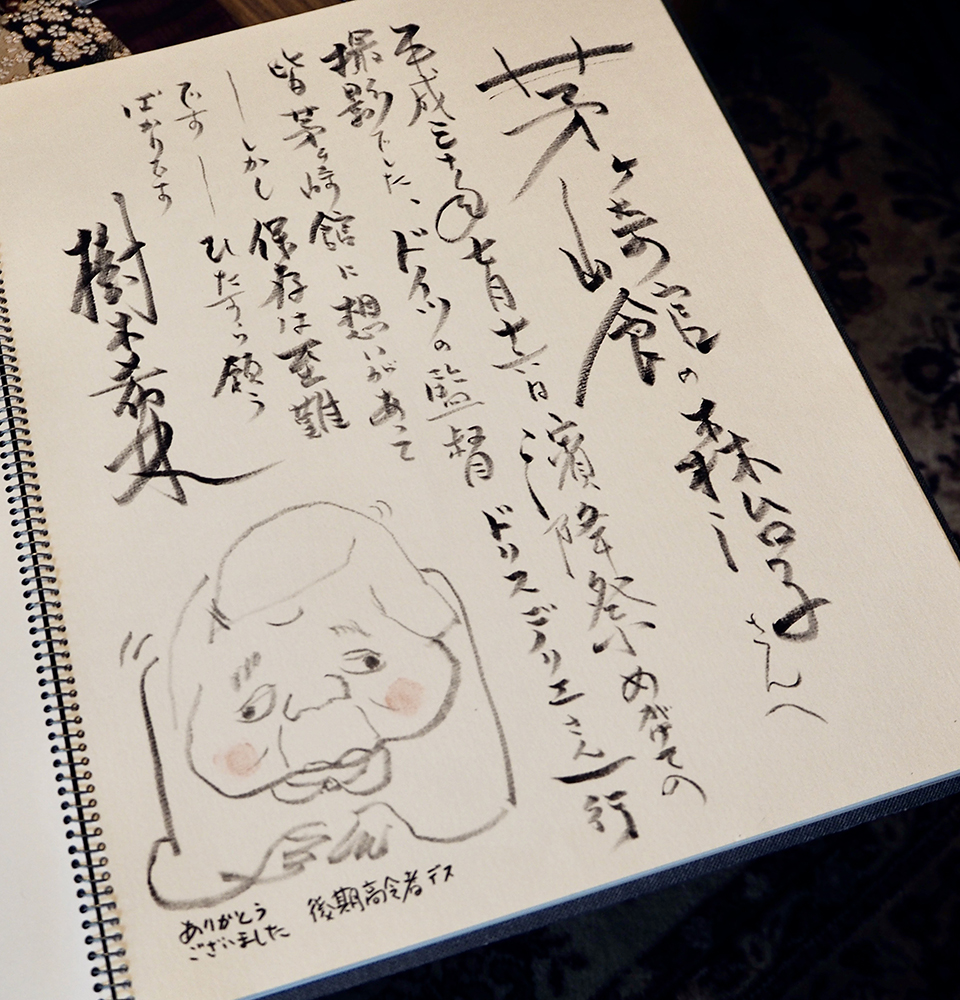 茅ヶ崎館の森治子さんへ
平成三十年七月十六日 濱降祭めがけての
撮影でした、ドイツの監督 ドリスデリエさん一行
皆茅ヶ崎館に想いがあって
ーしかし保存は至難
ですー ひたすら願う
ばかりです
樹木希林
ありがとう
ございました
後期高令者デス